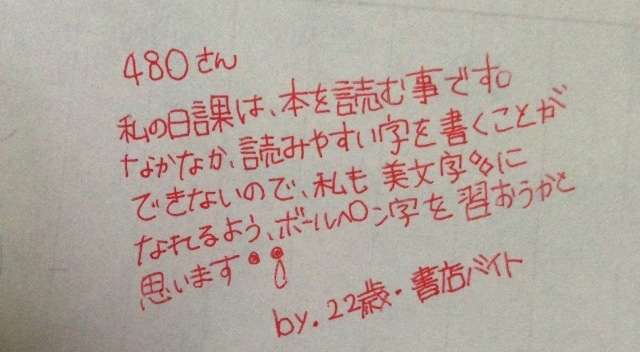 480さん
私の日課は、本を読む事です。
なかなか、読みやすい字を書くことが
できないので、私も美文字%に
なれるよう、ボールペン字を習おうかと
思います!
by.22歳・書店バイト